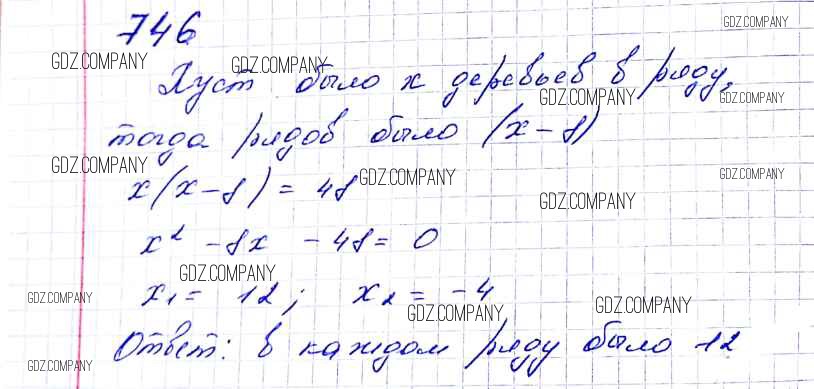 746
GDZ.COMPANY
GDZ.COMPANY GDZ.COMPANY
Пуст было x деревьев в ряду,
GDZ.COMPANY GDZ.COMPANY
тогда рядов было (x-8)
GDZ.COMPANY GDZ.COMPANY GDZ.COMPANY
x(x-8)=48
GDZ.COMPANY
x² -8x -48=0
GDZ.COMPANY
x₁= 12; x₂ = -4
GDZ.COMPANY GDZ.COMPANY GDZ.COMPANY
Ответ: в каждом ряду было 12
GDZ.COMPANY